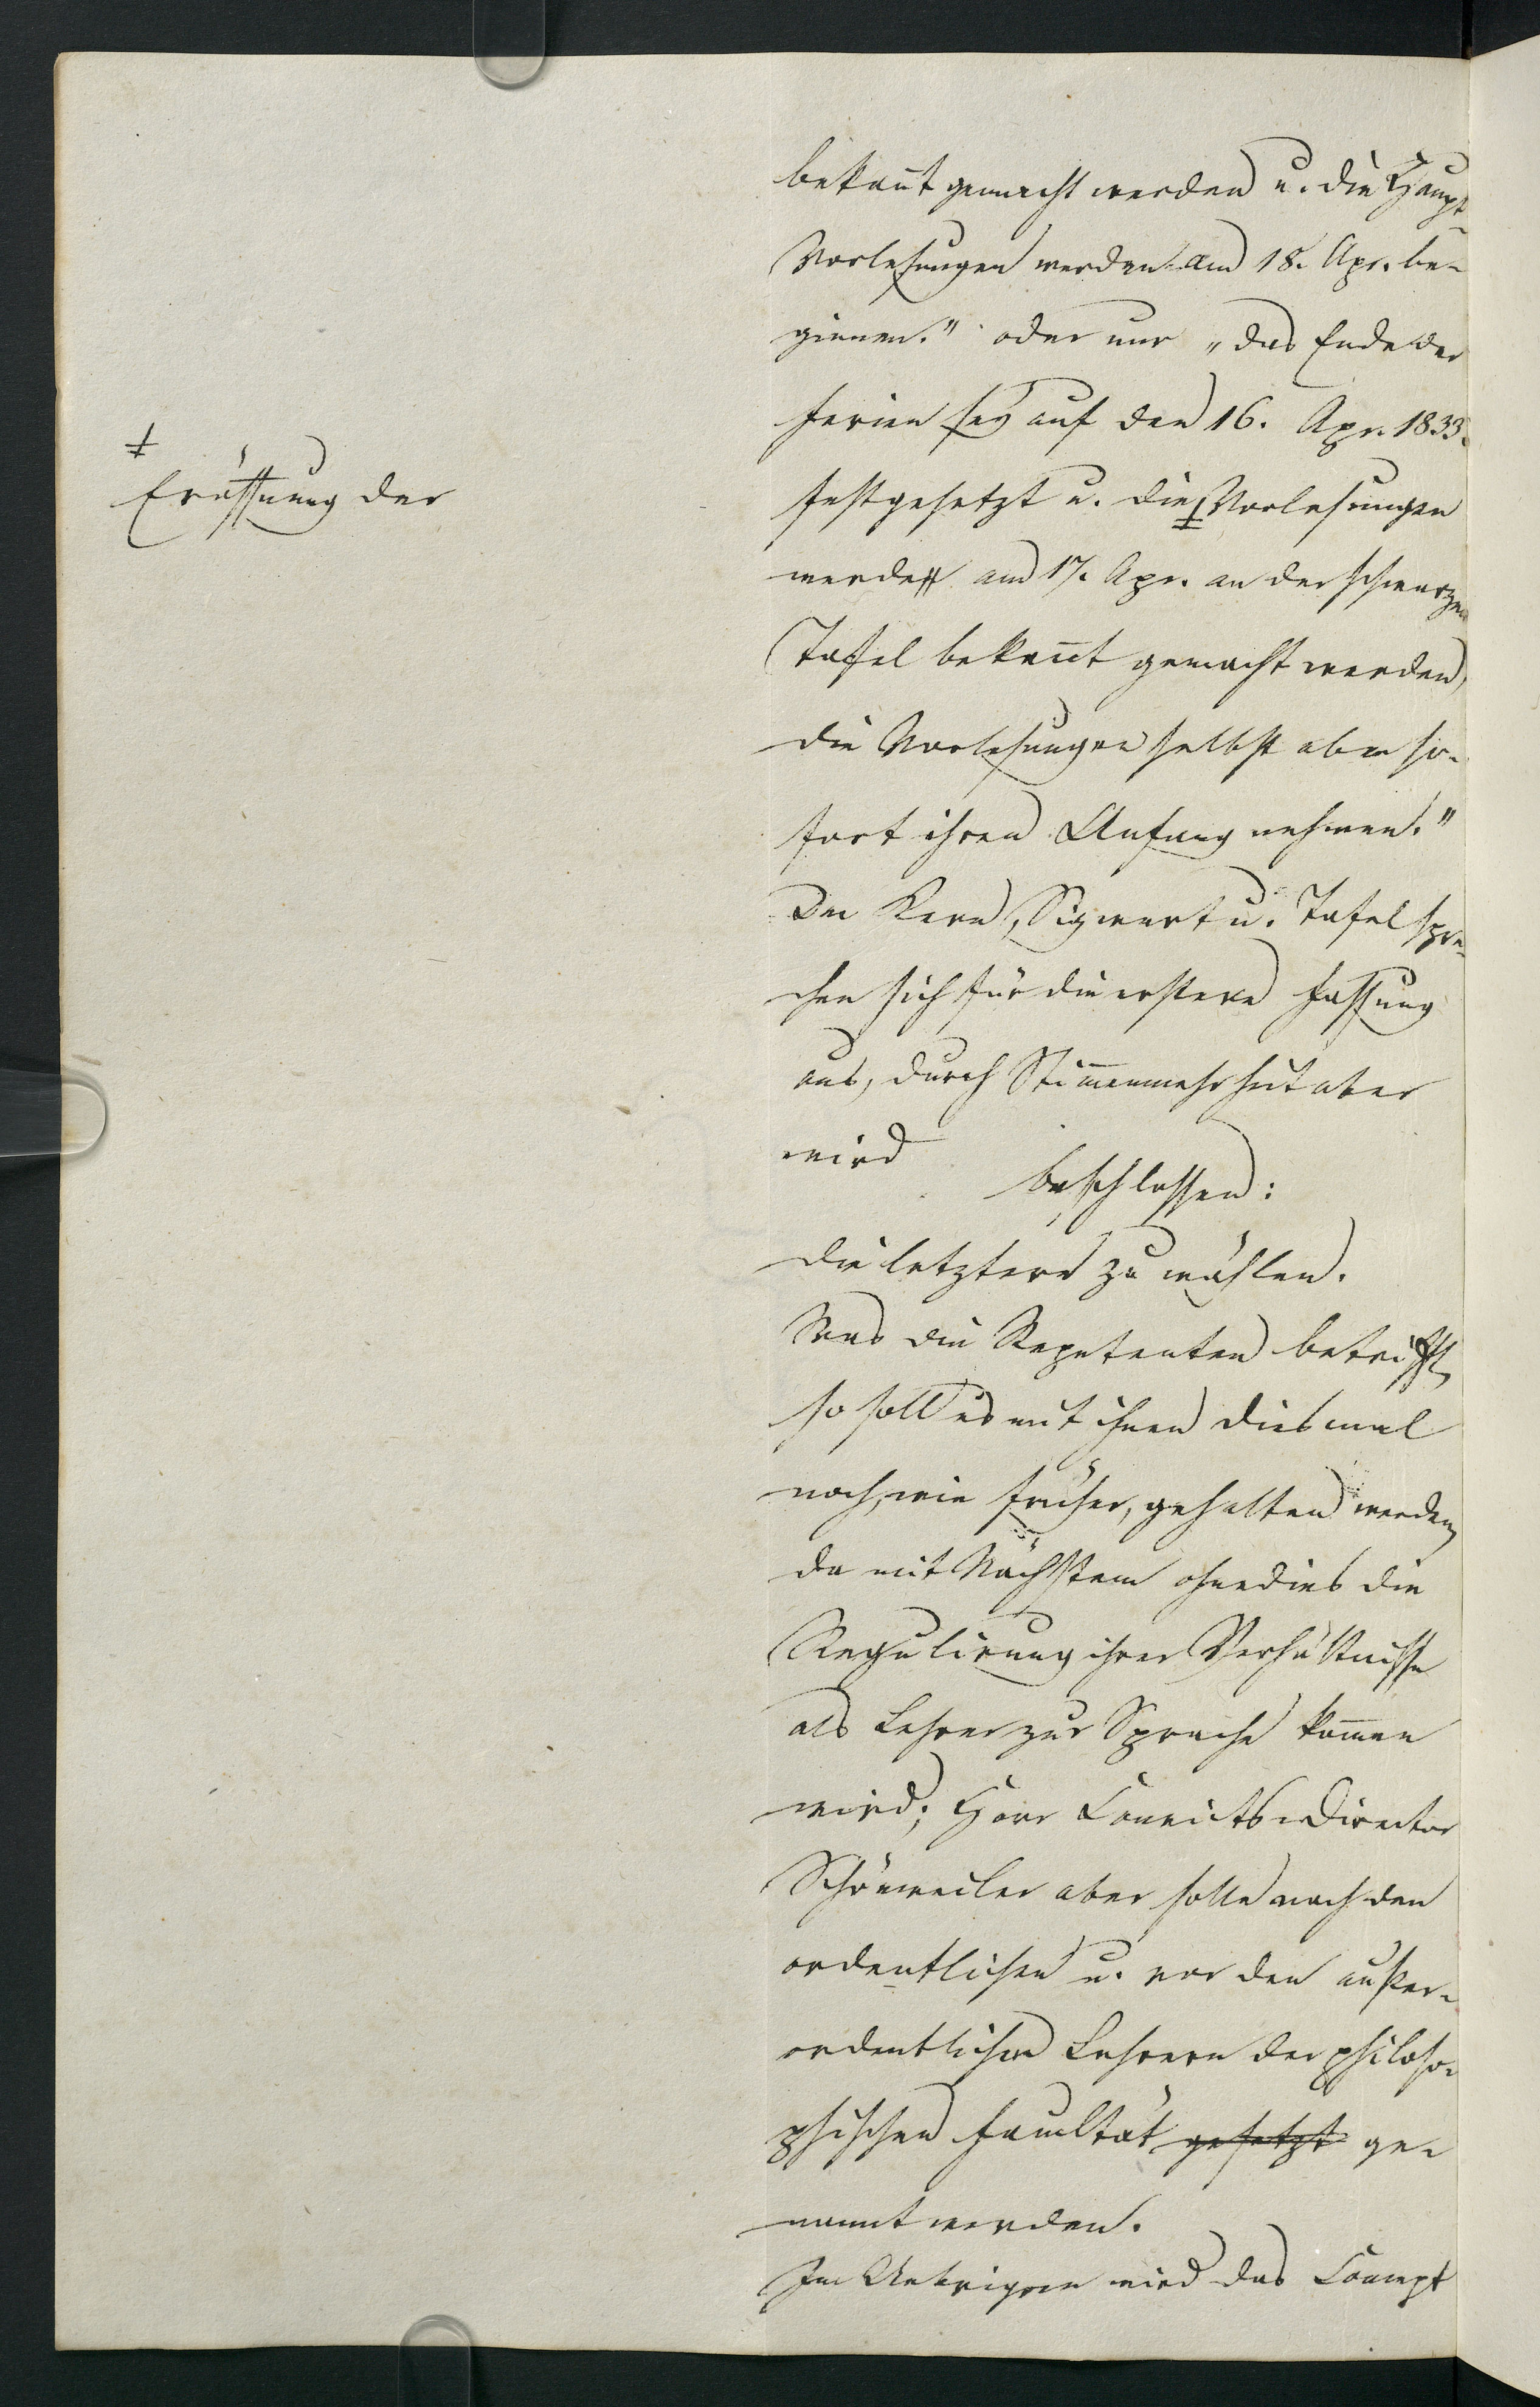 bekan̄t gemacht werden u. die Haupt-
Vorlesungen werden am 18. Apr. be-
ginnen." oder nur „das Ende der
Ferien sey auf den 16. Apr. 1833.
festgesetzt u. die ‡ Vorlesungen
werde am 17. Apr. an der schwarzen
Tafel bekan̄t gemacht werden,
die Vorlesungen selbst aber so-
fort ihren Anfang nehmen."
DD. Kern, Sigwart u. Tafel spre-
chen sich für die erstere Fassung
aus, durch Stim̄enmehrheit aber
wird
beschlossen:
die letztere zu wählen.
Was die Repetenten betrifft,
so soll es mit ihnen diesmal
noch, wie früher, gehalten werden,
da mit Nächstem ohnedies die
Regulirung ihrer Verhältnisse
als Lehrer zur Sprache kom̄en
wird; Herr Convicts-Director
Schönweiler aber solle nach den
ordentlichen u. vor den außer-
ordentlichen Lehrern der philoso-
phischen Facultät gesetzt ge-
nannt werden.
Im Uebrigen wird das Concept
‡
Eröffnung der